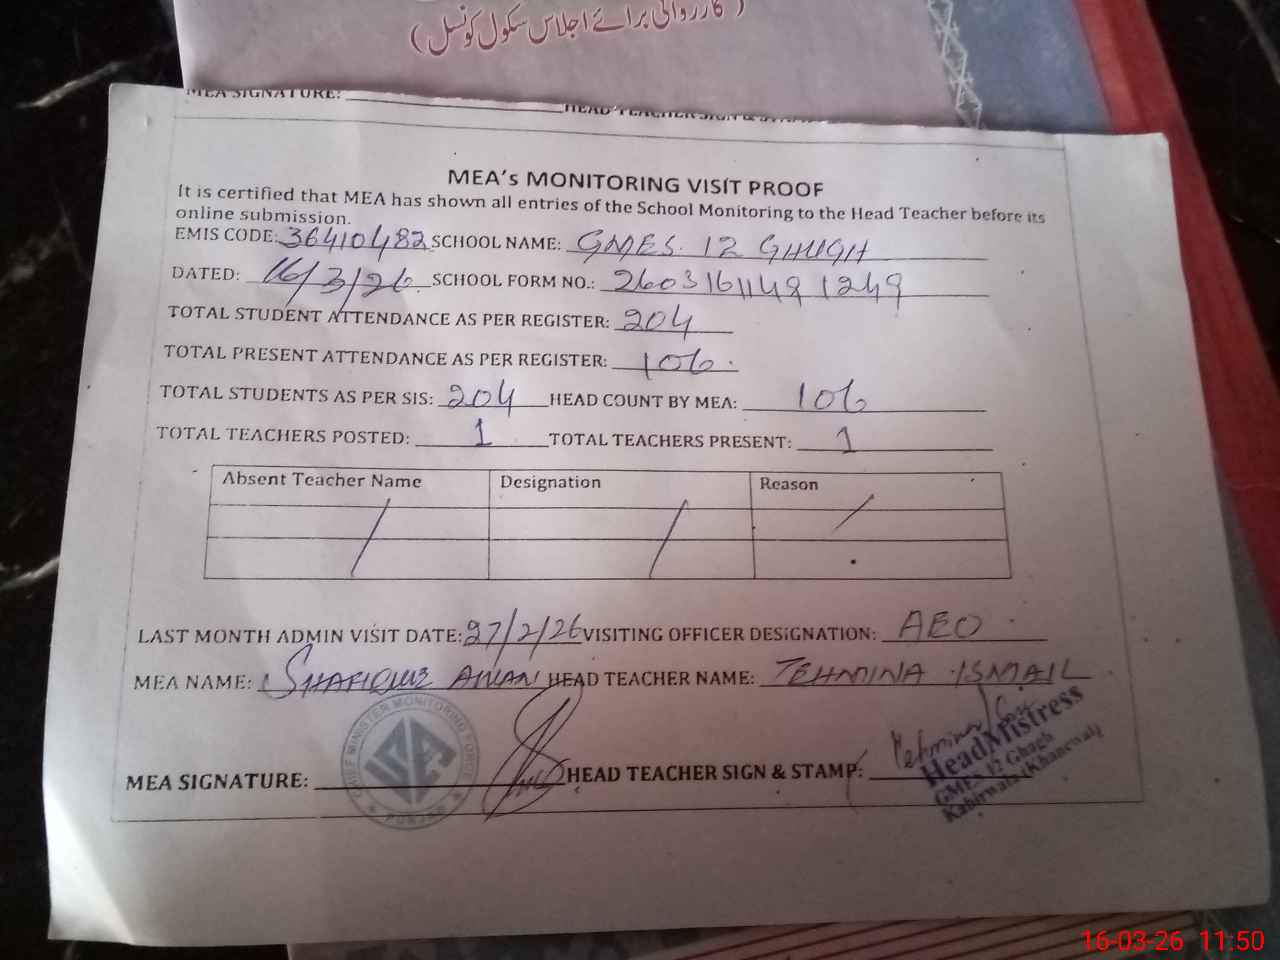 ( کارروائی برائے اجلاس سکول کونسل )
MEA SIGNATURE: HEAD TEACHER SIGN &
MEA's MONITORING VISIT PROOF
It is certified that MEA has shown all entries of the School Monitoring to the Head Teacher before its
online submission.
EMIS CODE: 36410482 SCHOOL NAME: GMES 12 GHUGH
DATED: 16/3/26 SCHOOL FORM NO.: 26031611491249
TOTAL STUDENT ATTENDANCE AS PER REGISTER: 204
TOTAL PRESENT ATTENDANCE AS PER REGISTER: 106
TOTAL STUDENTS AS PER SIS: 204 HEAD COUNT BY MEA: 106
TOTAL TEACHERS POSTED: 1 TOTAL TEACHERS PRESENT: 1
Absent Teacher Name Designation Reason
LAST MONTH ADMIN VISIT DATE: 27/2/26 VISITING OFFICER DESIGNATION: AEO
MEA NAME: SHAFIQUE AWAN HEAD TEACHER NAME: TEHMINA ISMAIL
CHIEF MINISTER MONITORING FORCE
MEA
PUNJAB
MEA SIGNATURE: HEAD TEACHER SIGN & STAMP: Tehmina
HeadMistress
GMES 12 Ghagh
Kabirwala (Khanewal)
16-03-26 11:50